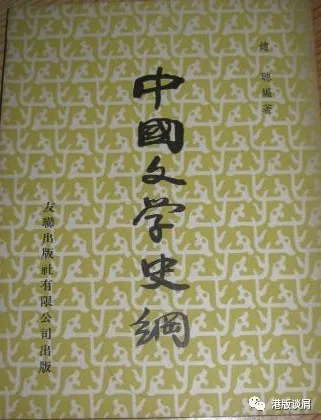 趙聰編著
中國文学史綱
友聯出版社有限公司出版
港版谈屑